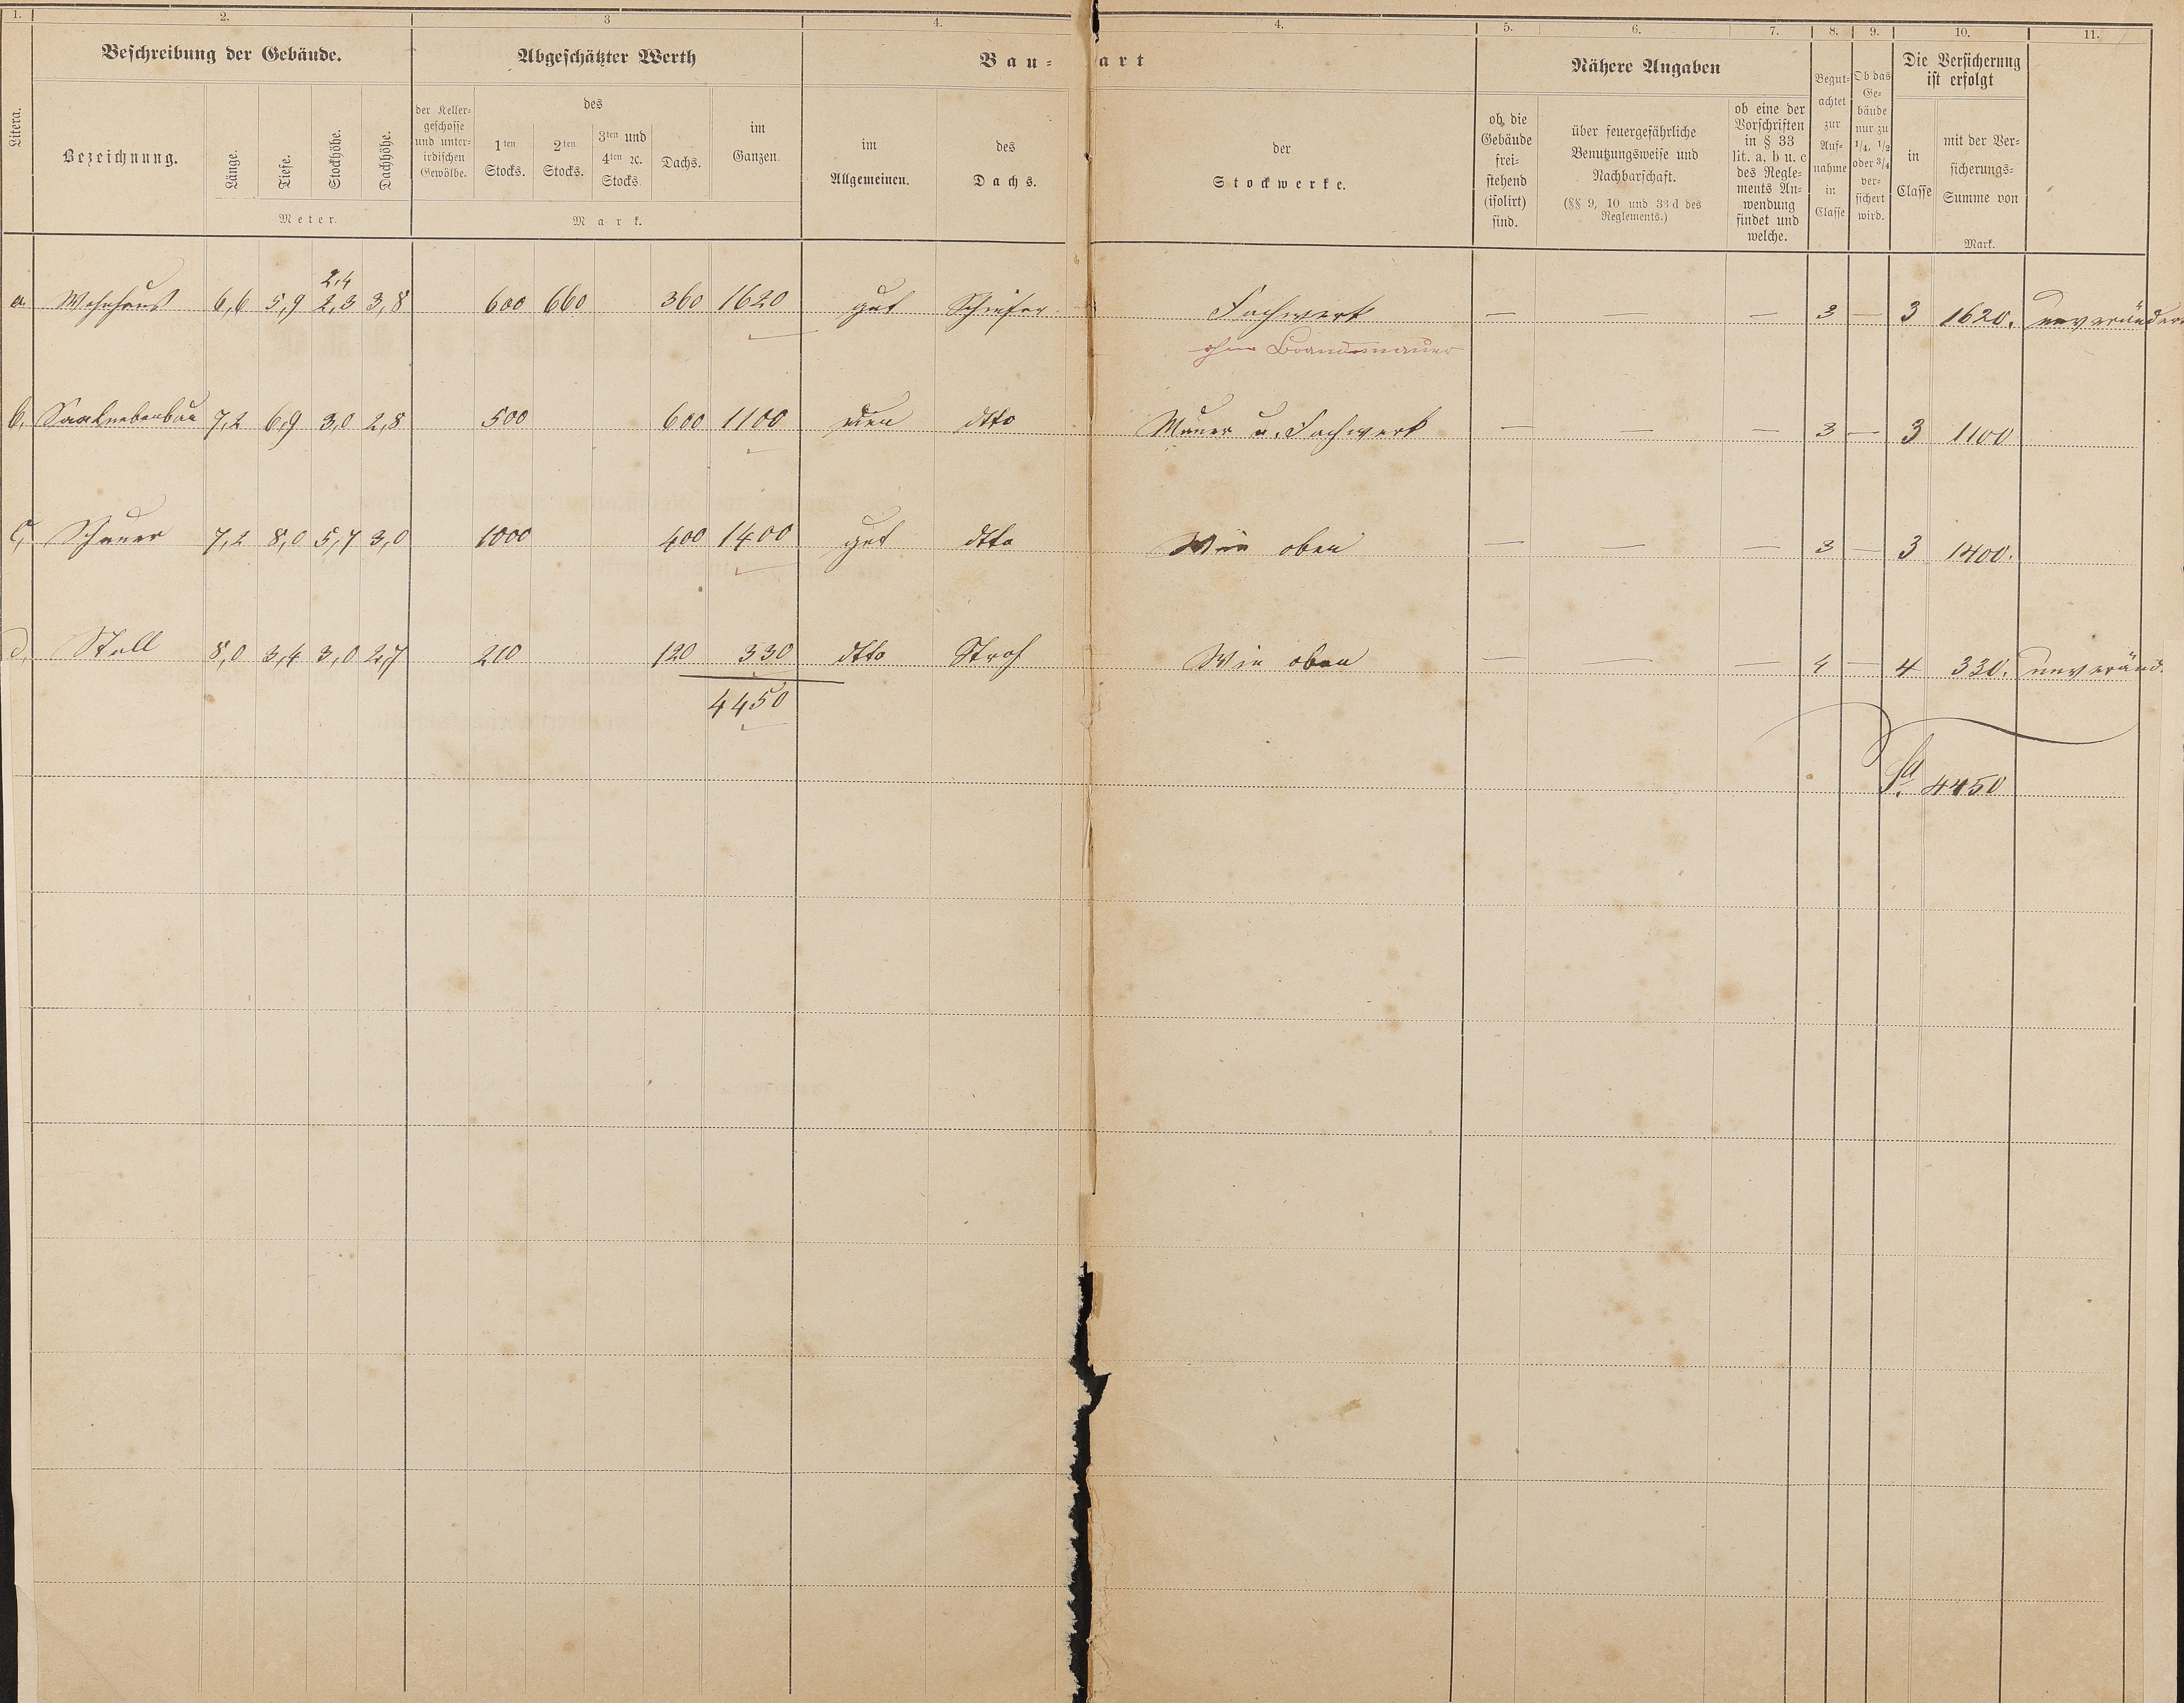 1. 2. 3 4. 4. 5. 6. 7. 8. 9. 10. 11.
Litera.
Beschreibung der Gebäude.
Bezeichnung.
Länge.
Tiefe.
Stockhöhe.
Dachhöhe.
Meter.
Abgeschätzter Werth
der Keller-
geschosse
und unter-
irdischen
Gewölbe.
des
1ten
Stocks.
2ten
Stocks.
3ten und
4ten ꝛc.
Stocks.
Dachs.
im
Ganzen.
Mark.
Bau- art
im
Allgemeinen.
des
Dachs.
der
Stockwerke.
Nähere Angaben
ob die
Gebäude
frei-
stehend
(isolirt)
sind.
über feuergefährliche
Benutzungsweise und
Nachbarschaft.
(§§ 9, 10 und 33 d des
Reglements.)
ob eine der
Vorschriften
in § 33
lit. a, b u. c
des Regle-
ments An-
wendung
findet und
welche.
Begut-
achtet
zur
Auf-
nahme
in
Classe
Ob das
Ge-
bäude
nur zu
1/4, 1/2
oder 3/4
ver-
sichert
wird.
Die Versicherung
ist erfolgt
in
Classe
mit der Ver-
sicherungs-
Summe von
Mark.
2,4
a. Wohnhaus 6,6 5,9 2,3 3,8 600 660 360 1620 gut Schiefer Fachwerk — — — 3 — 3 1620. unverändert
ohne Brandmauer
b. 7,2 6,9 3,0 2,8 500 600 1100 neu dtto Mauer u. Fachwerk — — — 3 — 3 1100
c, Scheuer 7,2 8,0 5,7 3,0 1000 400 1400 gut dtto Wie oben — — — 3 — 3 1400.
d, Stall 8,0 3,4 3,0 2,7 210 120 330 dtto Stroh Wie oben — — 4 — 4 330. unveränd.
4450
Sa. 4450